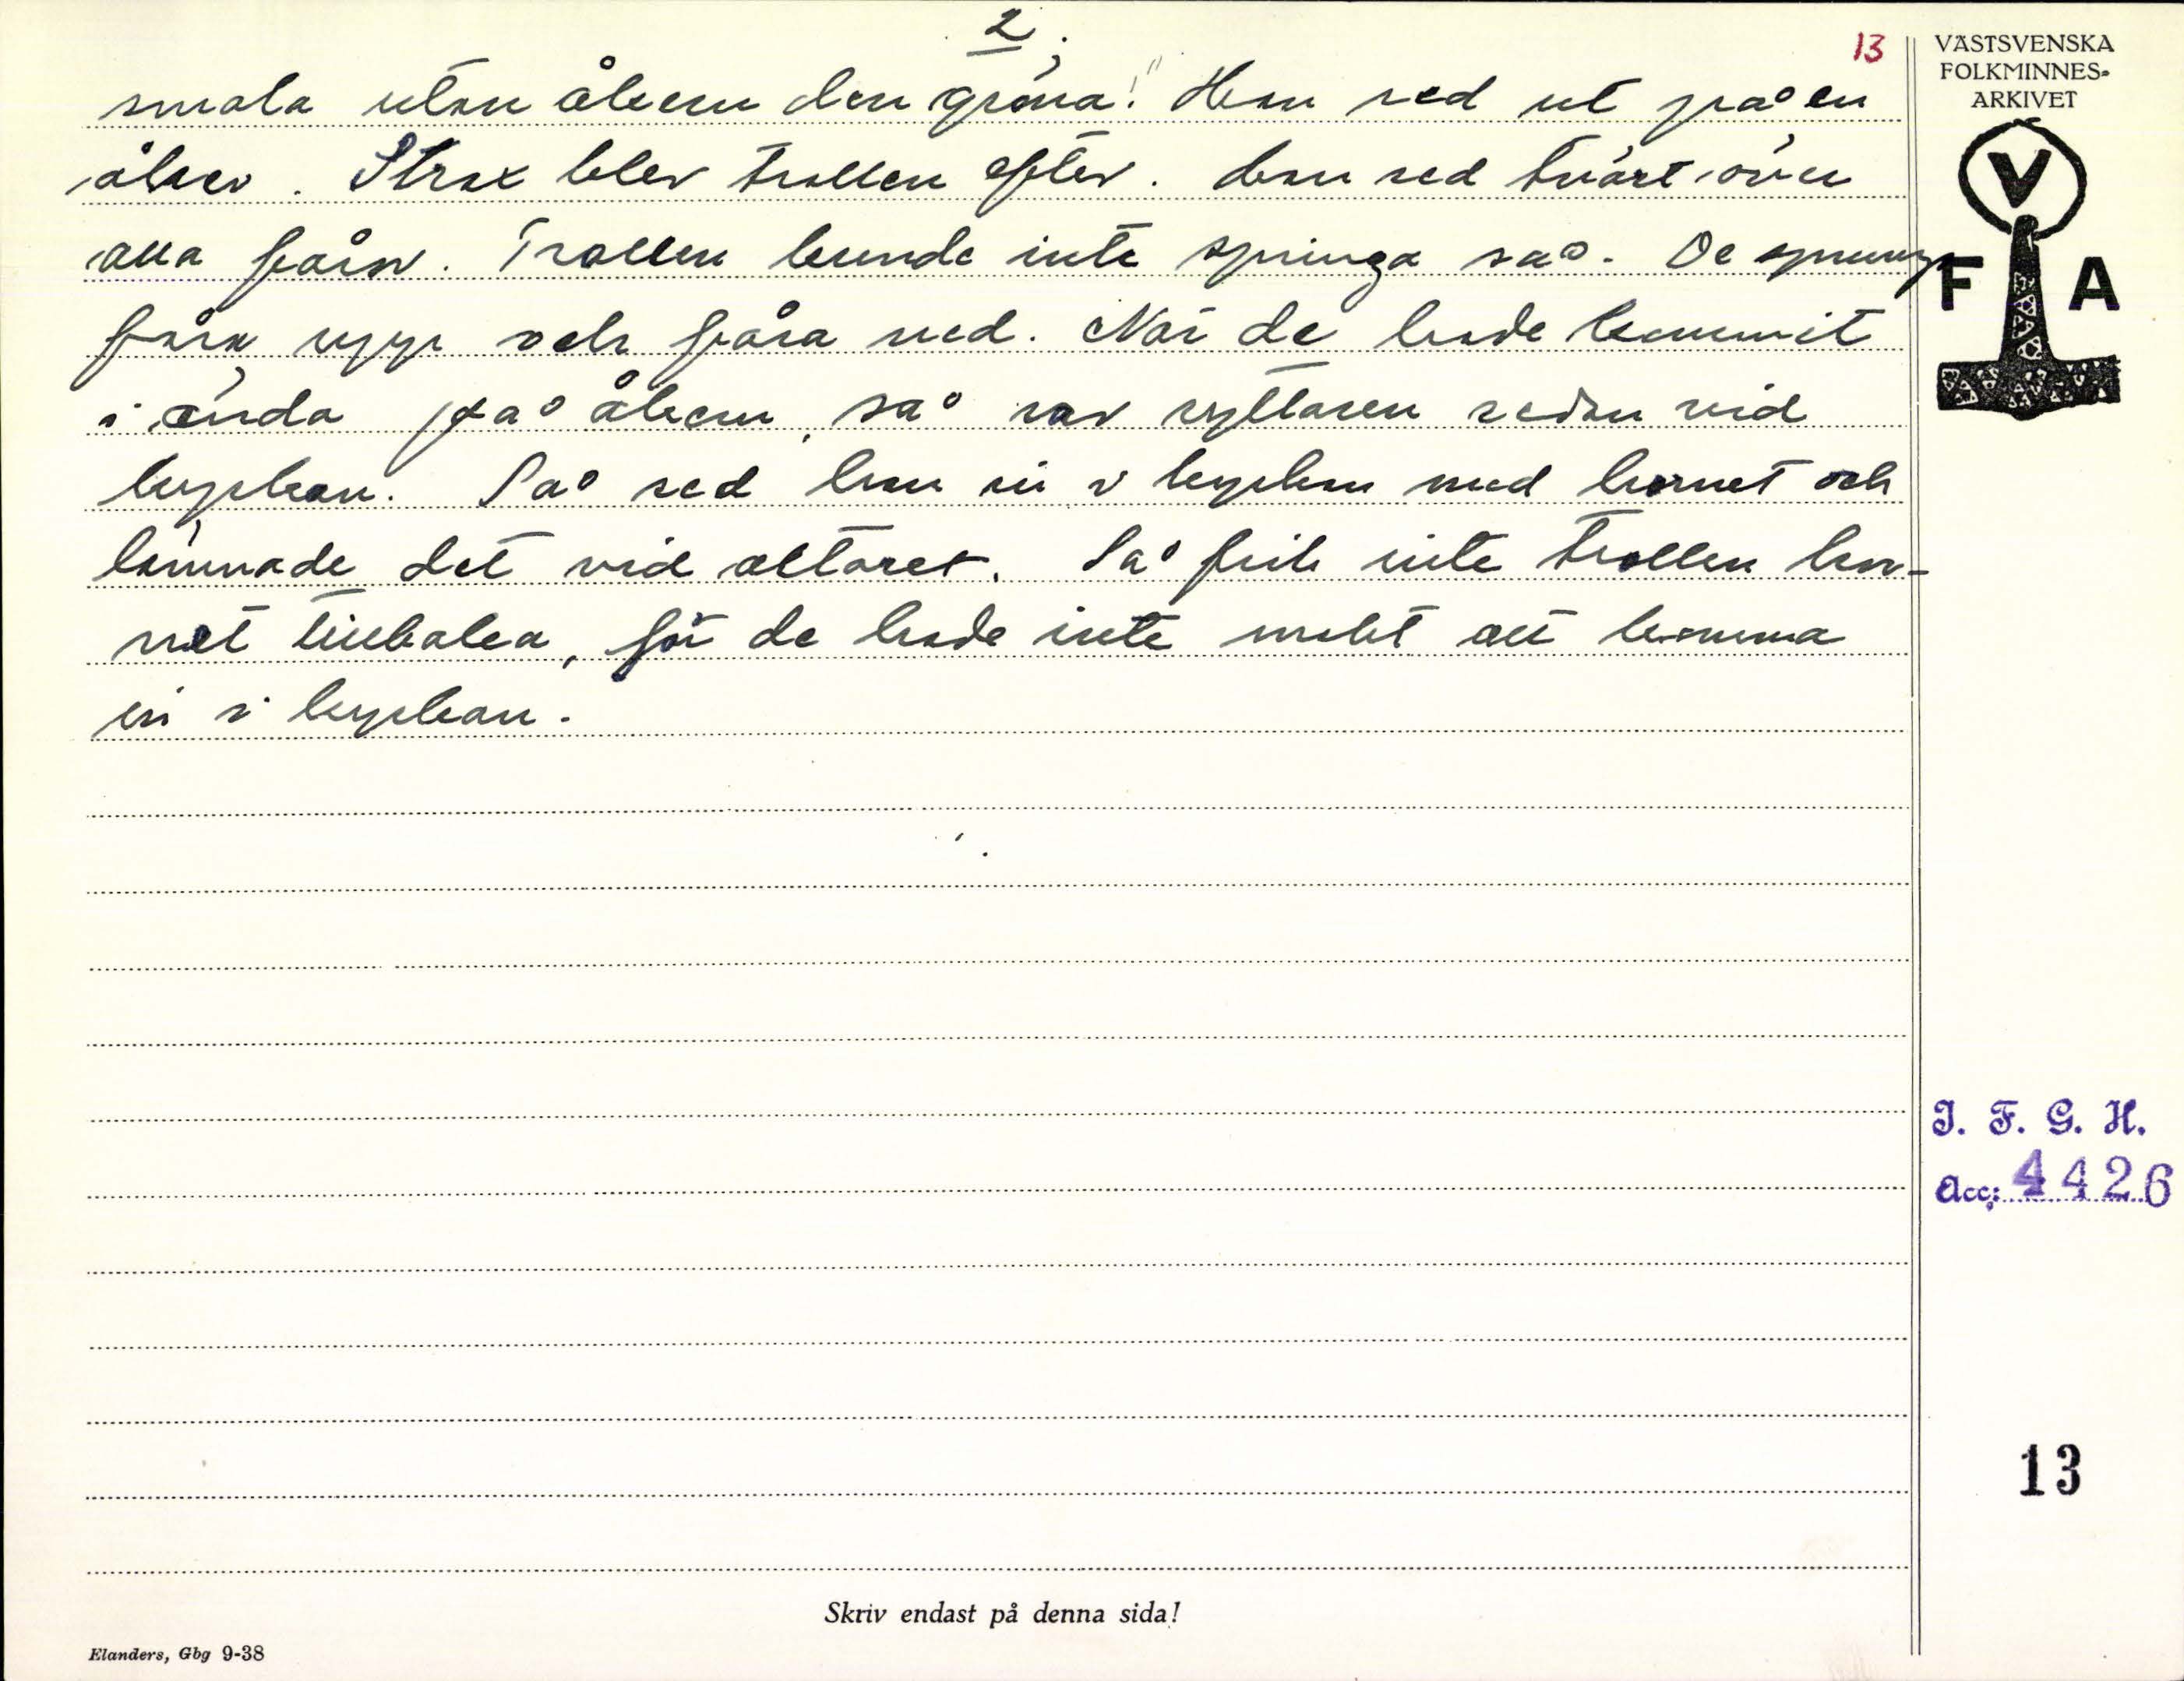 2.
13
smala utan åkern den gröna!" Han red ut på en
åker. Strax blev trollen efter. Han red tvärt över
alla fåror. Trollen kunde inte springa så. De sprung
fåra upp och fåra ned. När de hade kommit
i ända på åkern, så var ryttaren redan vid
kyrkan. Så red han in i kyrkan med hornet och
lämnade det vid altaret. Så fick inte trollen hor-
net tillbaka, för de hade inte makt att komma
in i kyrkan.
VÄSTSVENSKA
FOLKMINNES-
ARKIVET
V
F A
I. F. G. H.
Acc: 4426
13
Skriv endast på denna sida!
Elanders, Gbg 9-38